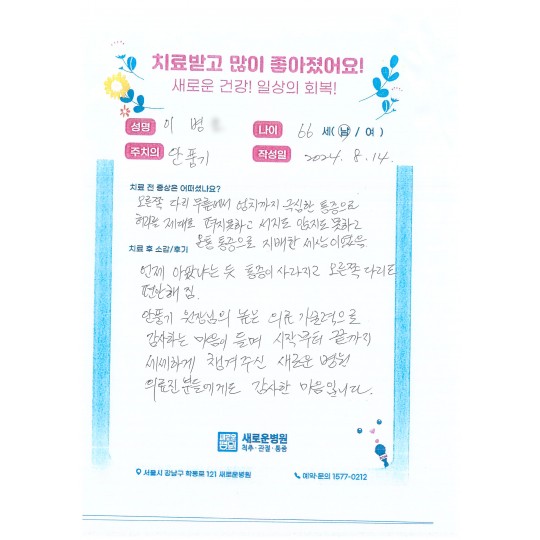 치료받고 많이 좋아졌어요!
새로운 건강! 일상의 회복!
성명 이 병
나이 66 세( 남 / 여 )
주치의 안풍기
작성일 2024. 8. 14.
치료 전 증상은 어떠셨나요?
오른쪽 다리 무릎에서 엄지까지 극심한 통증으로
허리를 제대로 펴지못하고 서지도 앉지도 못하고
온통 통증으로 지배한 세상이었음
치료 후 소감/후기
언제 아팠냐는 듯 통증이 사라지고 오른쪽 다리도
편안해 짐.
안풍기 원장님의 높은 의료 기술력으로
감사하는 마음이 들며 시작부터 끝까지
세세하게 챙겨주신 새로운 병원
의료진분들에게도 감사한 마음입니다.
새로운병원
새로운병원
척추·관절·통증
서울시 강남구 학동로 121 새로운병원
예약·문의 1577-0212